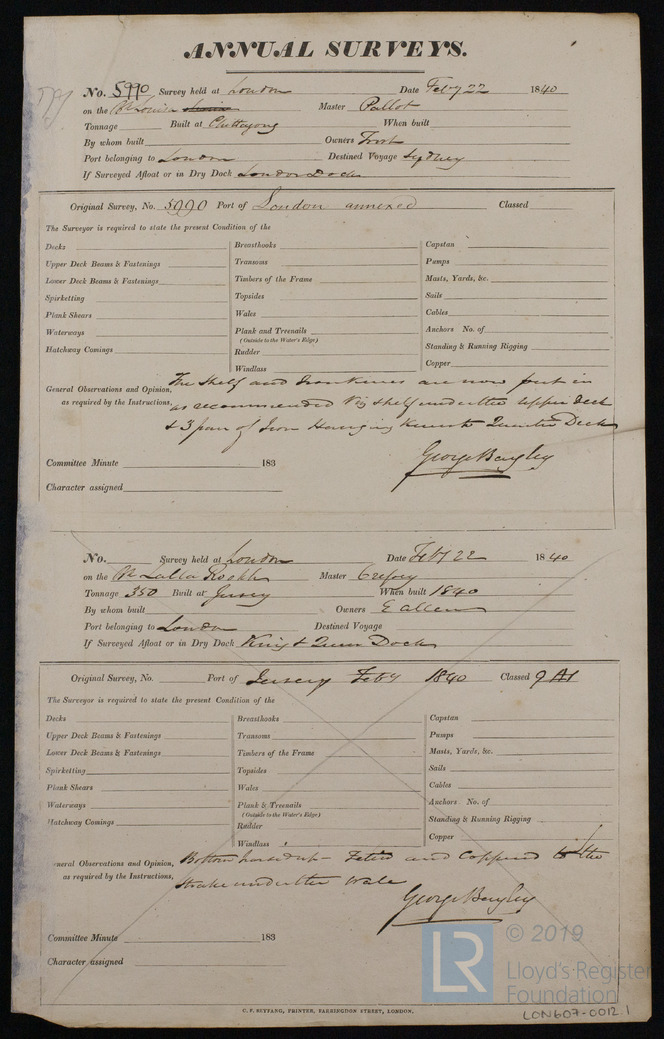 ANNUAL SURVEYS.
No. 5990 Survey held at London Date Feby 22 1840
on the Louisa Master Pallot
Tonnage Built at Chittagong When built
By whom built Owners
Port belonging to London Destined Voyage Sydney
If Surveyed Afloat or in Dry Dock London Dock
Original Survey, No. 5990 Port of London annexed Classed
The Surveyor is required to state the present Condition of the
Decks Breasthooks Capstan
Upper Deck Beams & Fastenings Transoms Pumps
Lower Deck Beams & Fastenings Timbers of the Frame Masts, Yards, &c.
Spirketting Topsides Sails
Plank Shears Wales Cables
Waterways Plank and Treenails Anchors No. of
(Outside to the Water's Edge)
Hatchway Comings Rudder Standing & Running Rigging
Windlass Copper
General Observations and Opinion, The Shelf and Iron Knees are now put in
as required by the Instructions, as recommended Viz Shelf under the upper Deck
& 3 pair of Iron Hanging Knees to Quarter Deck
George Bayley
Committee Minute 183
Character assigned
No. Survey held at London Date Feby 22 1840
on the Lalla Rookh Master
Tonnage 350 Built at Jersey When built 1840
By whom built Owners E Allen
Port belonging to London Destined Voyage
If Surveyed Afloat or in Dry Dock King & Queen Dock
Original Survey, No. Port of Jersey Feby 1840 Classed 9 A1
The Surveyor is required to state the present Condition of the
Decks Breasthooks Capstan
Upper Deck Beams & Fastenings Transoms Pumps
Lower Deck Beams & Fastenings Timbers of the Frame Masts, Yards, &c.
Spirketting Topsides Sails
Plank Shears Wales Cables
Waterways Plank & Treenails Anchors No. of
(Outside to the Water's Edge)
Hatchway Comings Rudder Standing & Running Rigging
Windlass Copper
General Observations and Opinion, Bottom Felted and Coppered to the
as required by the Instructions, Strake under the Wale
George Bayley
Committee Minute 183
Character assigned
C. F. SEYFANG, PRINTER, FARRINGDON STREET, LONDON.
LR © 2019
Lloyd's Register
Foundation
LON607-0012.1